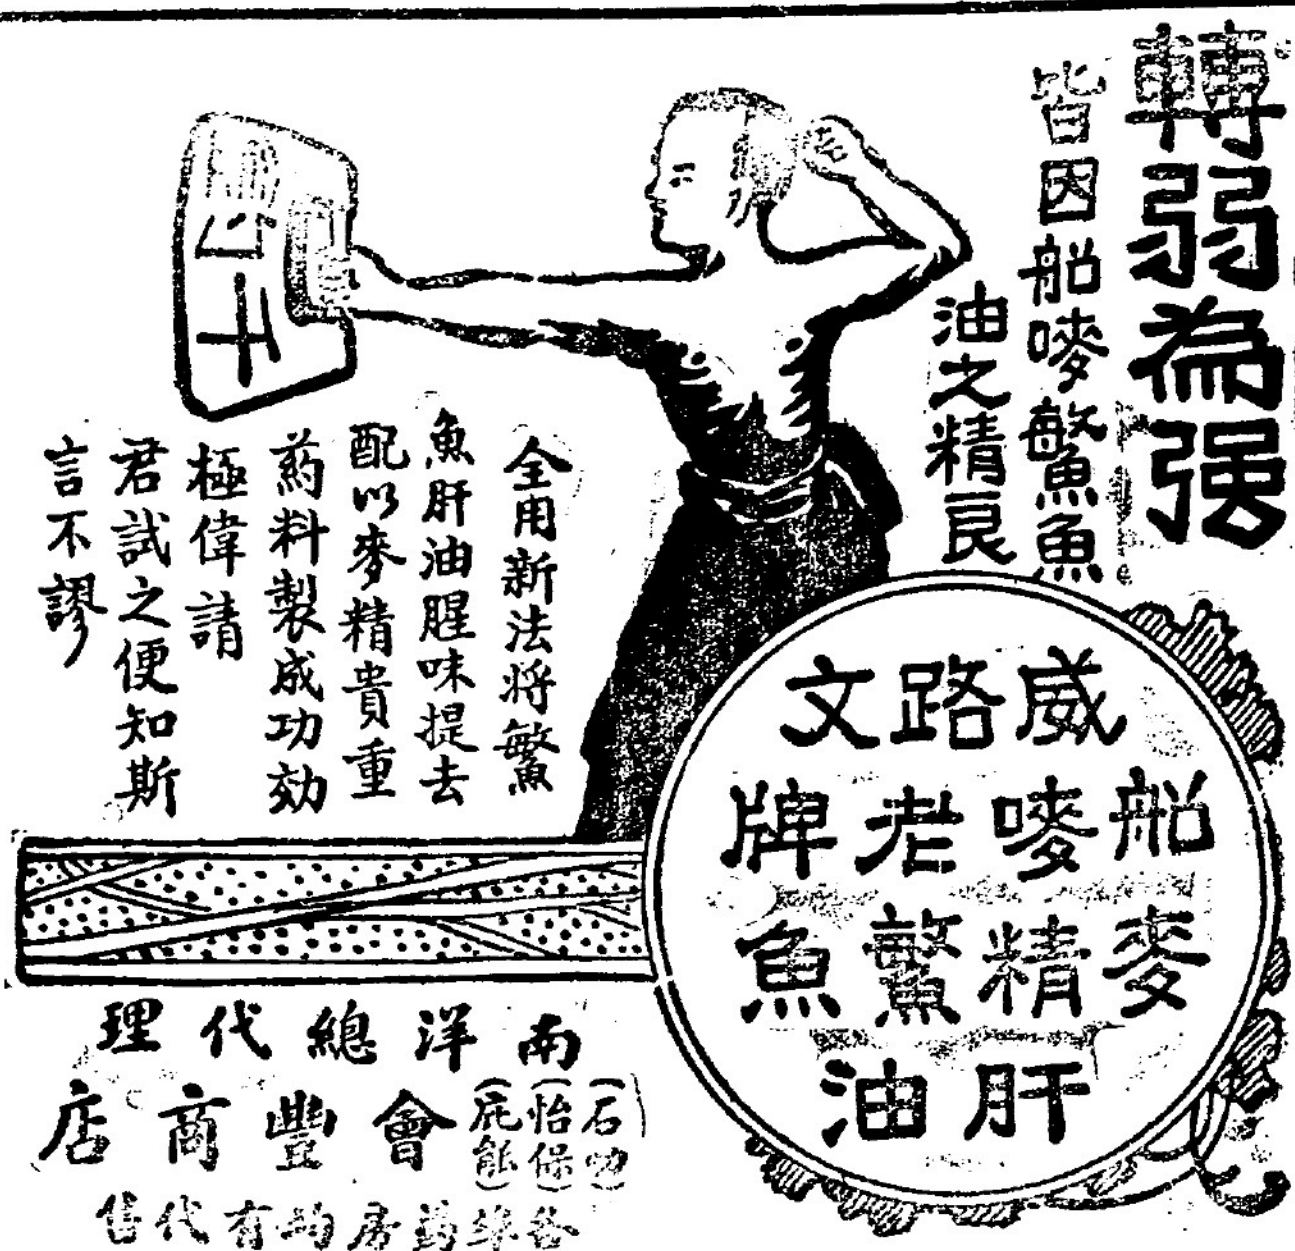 轉弱為强
皆因船嘜鰵魚
油之精良
全用新法将鰵
魚肝油腥味提去
配以麥精貴重
葯料製成功効
極偉請
君試之便知斯
言不謬
威路文
船嘜老牌
麥精鰵魚
肝油
南洋總代理
(石叻)(怡保)(庇能)會豐商店
各埠葯房均有代售